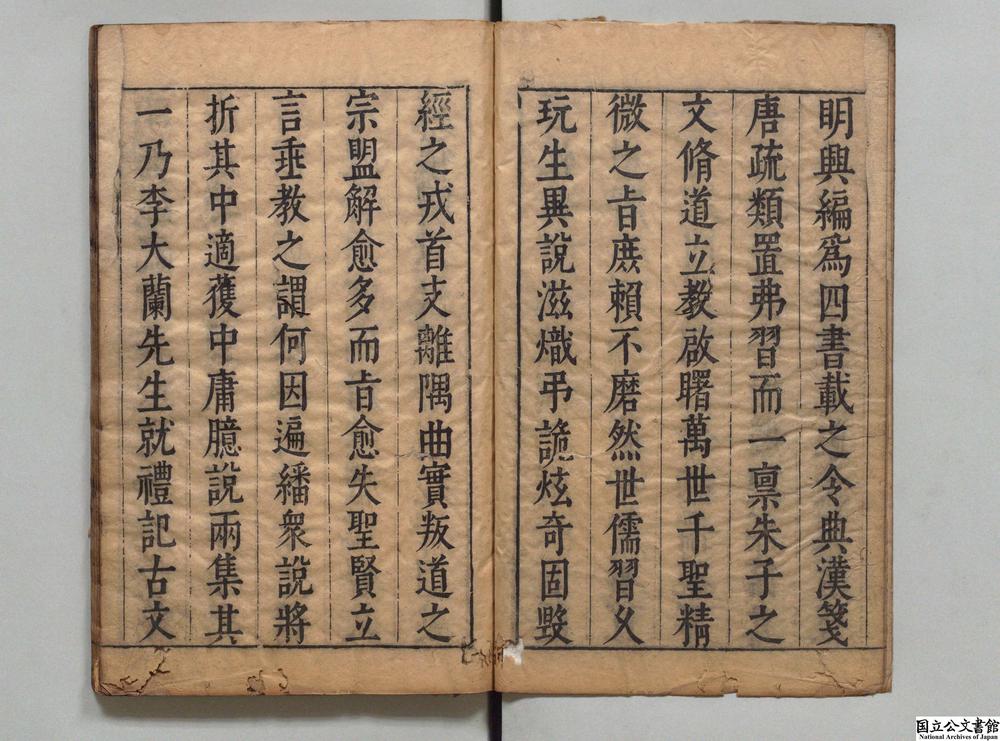 明興編爲四書載之令典漢箋
唐疏類置弗習而一禀朱子之
文脩道立教啟曙萬世千聖精
微之㫖庻賴不磨然世儒習乆
玩生異說滋熾弔詭炫竒固毀
經之戎首支離隅曲實叛道之
宗盟解愈多而㫖愈失聖賢立
言垂教之謂何因遍繙衆說將
折其中適獲中庸臆說兩集其
一乃李大蘭先生就禮記古文
国立公文書館
National Archives of Japan